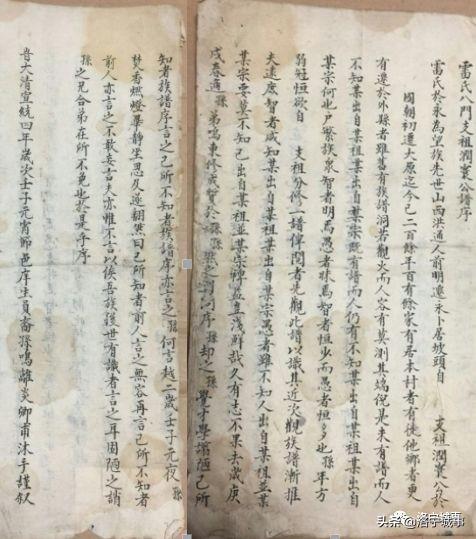 雷氏八門支祖潤寰公譜序
雷氏於永為望族先世山西洪通人前明遷永卜居坡頭自 支祖潤寰公於
國朝初遷大原迄今已二百餘年百有餘家有居本村者有徙他鄉者更
有遷於外縣者雖舊有族譜洞若觀火而人容有莫測其端倪是未有譜而人
不知某出自某祖某出自某宗既有譜而人仍有不知某出自某祖某出自
某宗何也戶繁族衆智者明焉愚者昧焉智者恒少而愚者恒多也孫年方
弱冠恒欲自 支祖分修一譜俾閱者先觀此譜以識其近次觀族譜漸推
夫遠庶智者咸知某出自某祖某出自某宗愚者雖不知人出自某祖並某
某宗要莫不知己出自某祖並某宗裨益豈淺鮮哉久有志不果去歲庚
戌春適 孫弟鳴東 於孫 序 孫却之孫學 陋己所
知者族譜序言之己所不知者族譜序亦言之孫何言越二歲壬子元夜孫
焚香燃燈畢靜坐思久遂翻然曰己所知者前人言之無容再言己所不知者
前人亦言之不敢妄言夫亦惟不言以俟吾族後世有識者言之耳固陋之誚
孫之兄合弟在所不免也於是乎序
昔大清宣統四年歲次壬子元宵節邑庠生員裔孫鳴離炎卿甫沐手謹敘
洛宁城事
头条 @洛宁城事